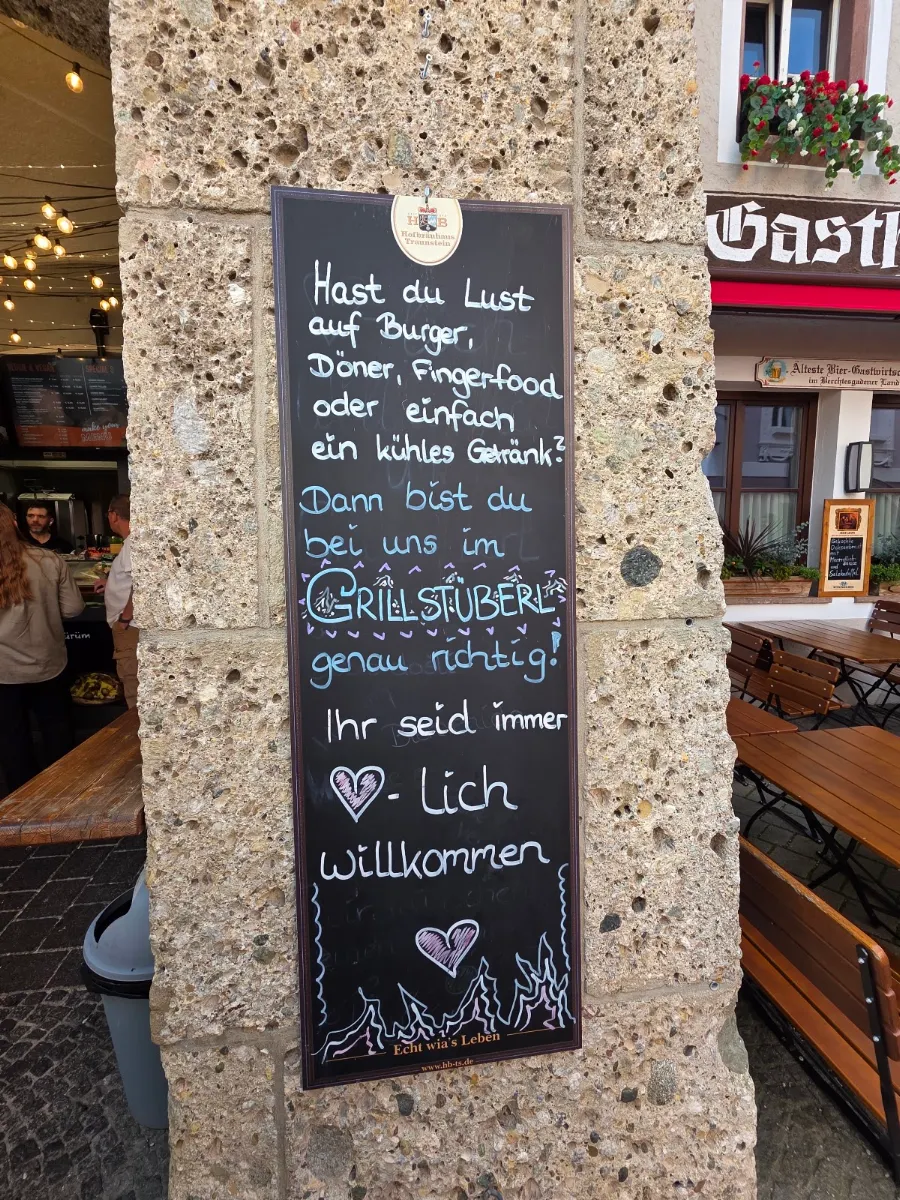 HB
Hofbräuhaus
Traunstein
Hast du Lust
auf Burger,
Döner, Fingerfood
oder einfach
ein kühles Getränk?
Dann bist du
bei uns im
GRILLSTÜBERL
genau richtig!
Ihr seid immer
- lich
willkommen
Echt wia's Leben
www.hb-ts.de
Gasth
Älteste Bier-Gastwirtsc
im Berchtesgadener Land
ürüm